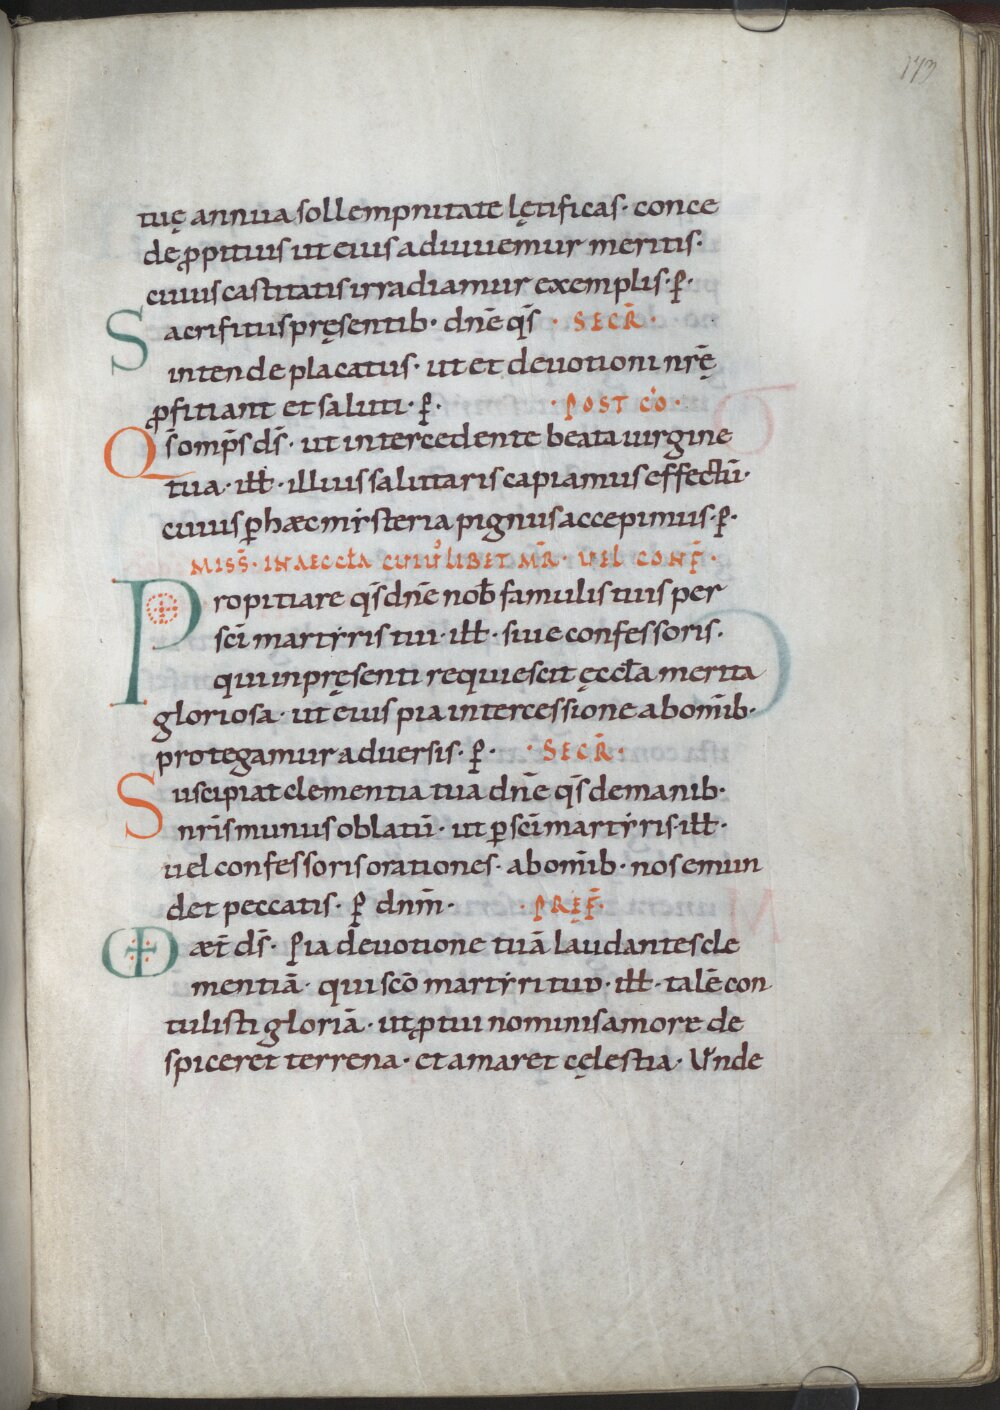 173
tuę annua sollempnitate lętificas · conce
de ꝓpitius ut eius adiuuemur meritis ·
cuius castitatis irradiamur exemplis · ꝑ ·
Sacrifitus pręsentib · dn̄e qs̄ · SECR̄ ·
intende placatus · ut et deuotioni nrę̄
ꝓfitiant et saluti · ꝑ · · POST CŌ ·
Qs̄ omp̄s ds̄ · ut intercedente beata uirgine
tua · ill̄ · illius salutaris capiamus effectū ·
cuius ꝑ hæc mẏsteria pignus accepimus · ꝑ ·
MISS̄ · IN AECCŁA CUIUꝰLIBET MR̄ · UEL CONF̄ ·
Propitiare qs̄ dn̄e nob̄ famulis tuis per
sc̄i martẏris tui · ill̄ · siue confessoris ·
qui in pręsenti requiescit ęccła merita
gloriosa · ut eius pia intercessione ab om̄ib ·
protegamur aduersis · ꝑ · · SECR̄ ·
Suscipiat clementia tua dn̄e qs̄ de manib ·
nr̄is munus oblatū · ut ꝑ sc̄i martẏris · ill̄ ·
uel confessoris orationes · ab om̄ib · nos emun
det peccatis · ꝑ dnm̄ · · PREF̄ ·
æt̄ ds̄ · Pia deuotione tuā laudantes cle
mentiā · qui sc̄o martẏri tuo · ill̄ · talē con
tulisti gloriā · ut ꝓ tui nominis amore de
spiceret terrena · et amaret cęlestia · Unde